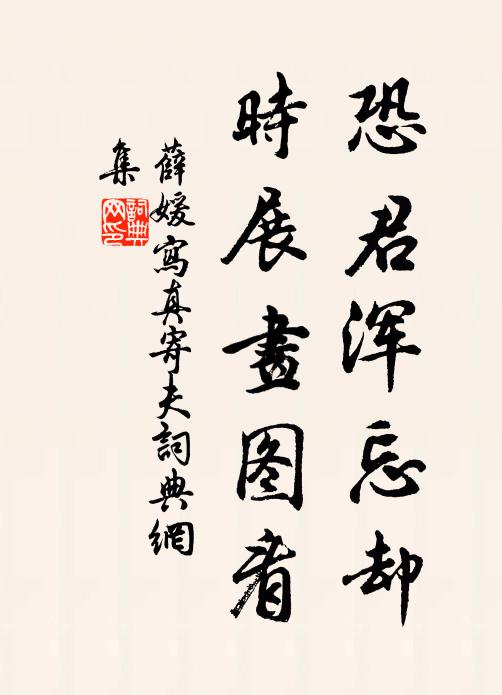 恐君浑忘却
時展畫图看
薛媛寫真寄夫詞典網
集
詞典
网印